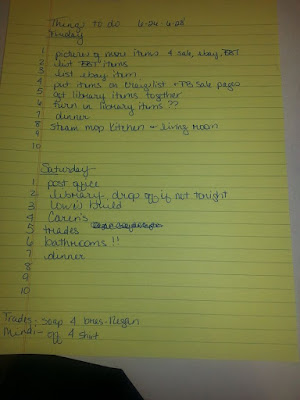 Things to do 6-24-6-25
Friday
1 pictures of more items 4 sale, ebay,
2 list items
3 list ebay item
4 put items on Craigslist + FB Sale pages
5 get library items together
6 turn in library items ??
7 dinner
8 steam mop kitchen + living room
9
10
Saturday
1 post office
2 library, drop off if not tonight
3 build
4 Caren's
5 trades
6 bathrooms !!
7 dinner
8
9
10
Trades- soap 4 bras-
Mindi- off 4 shirt